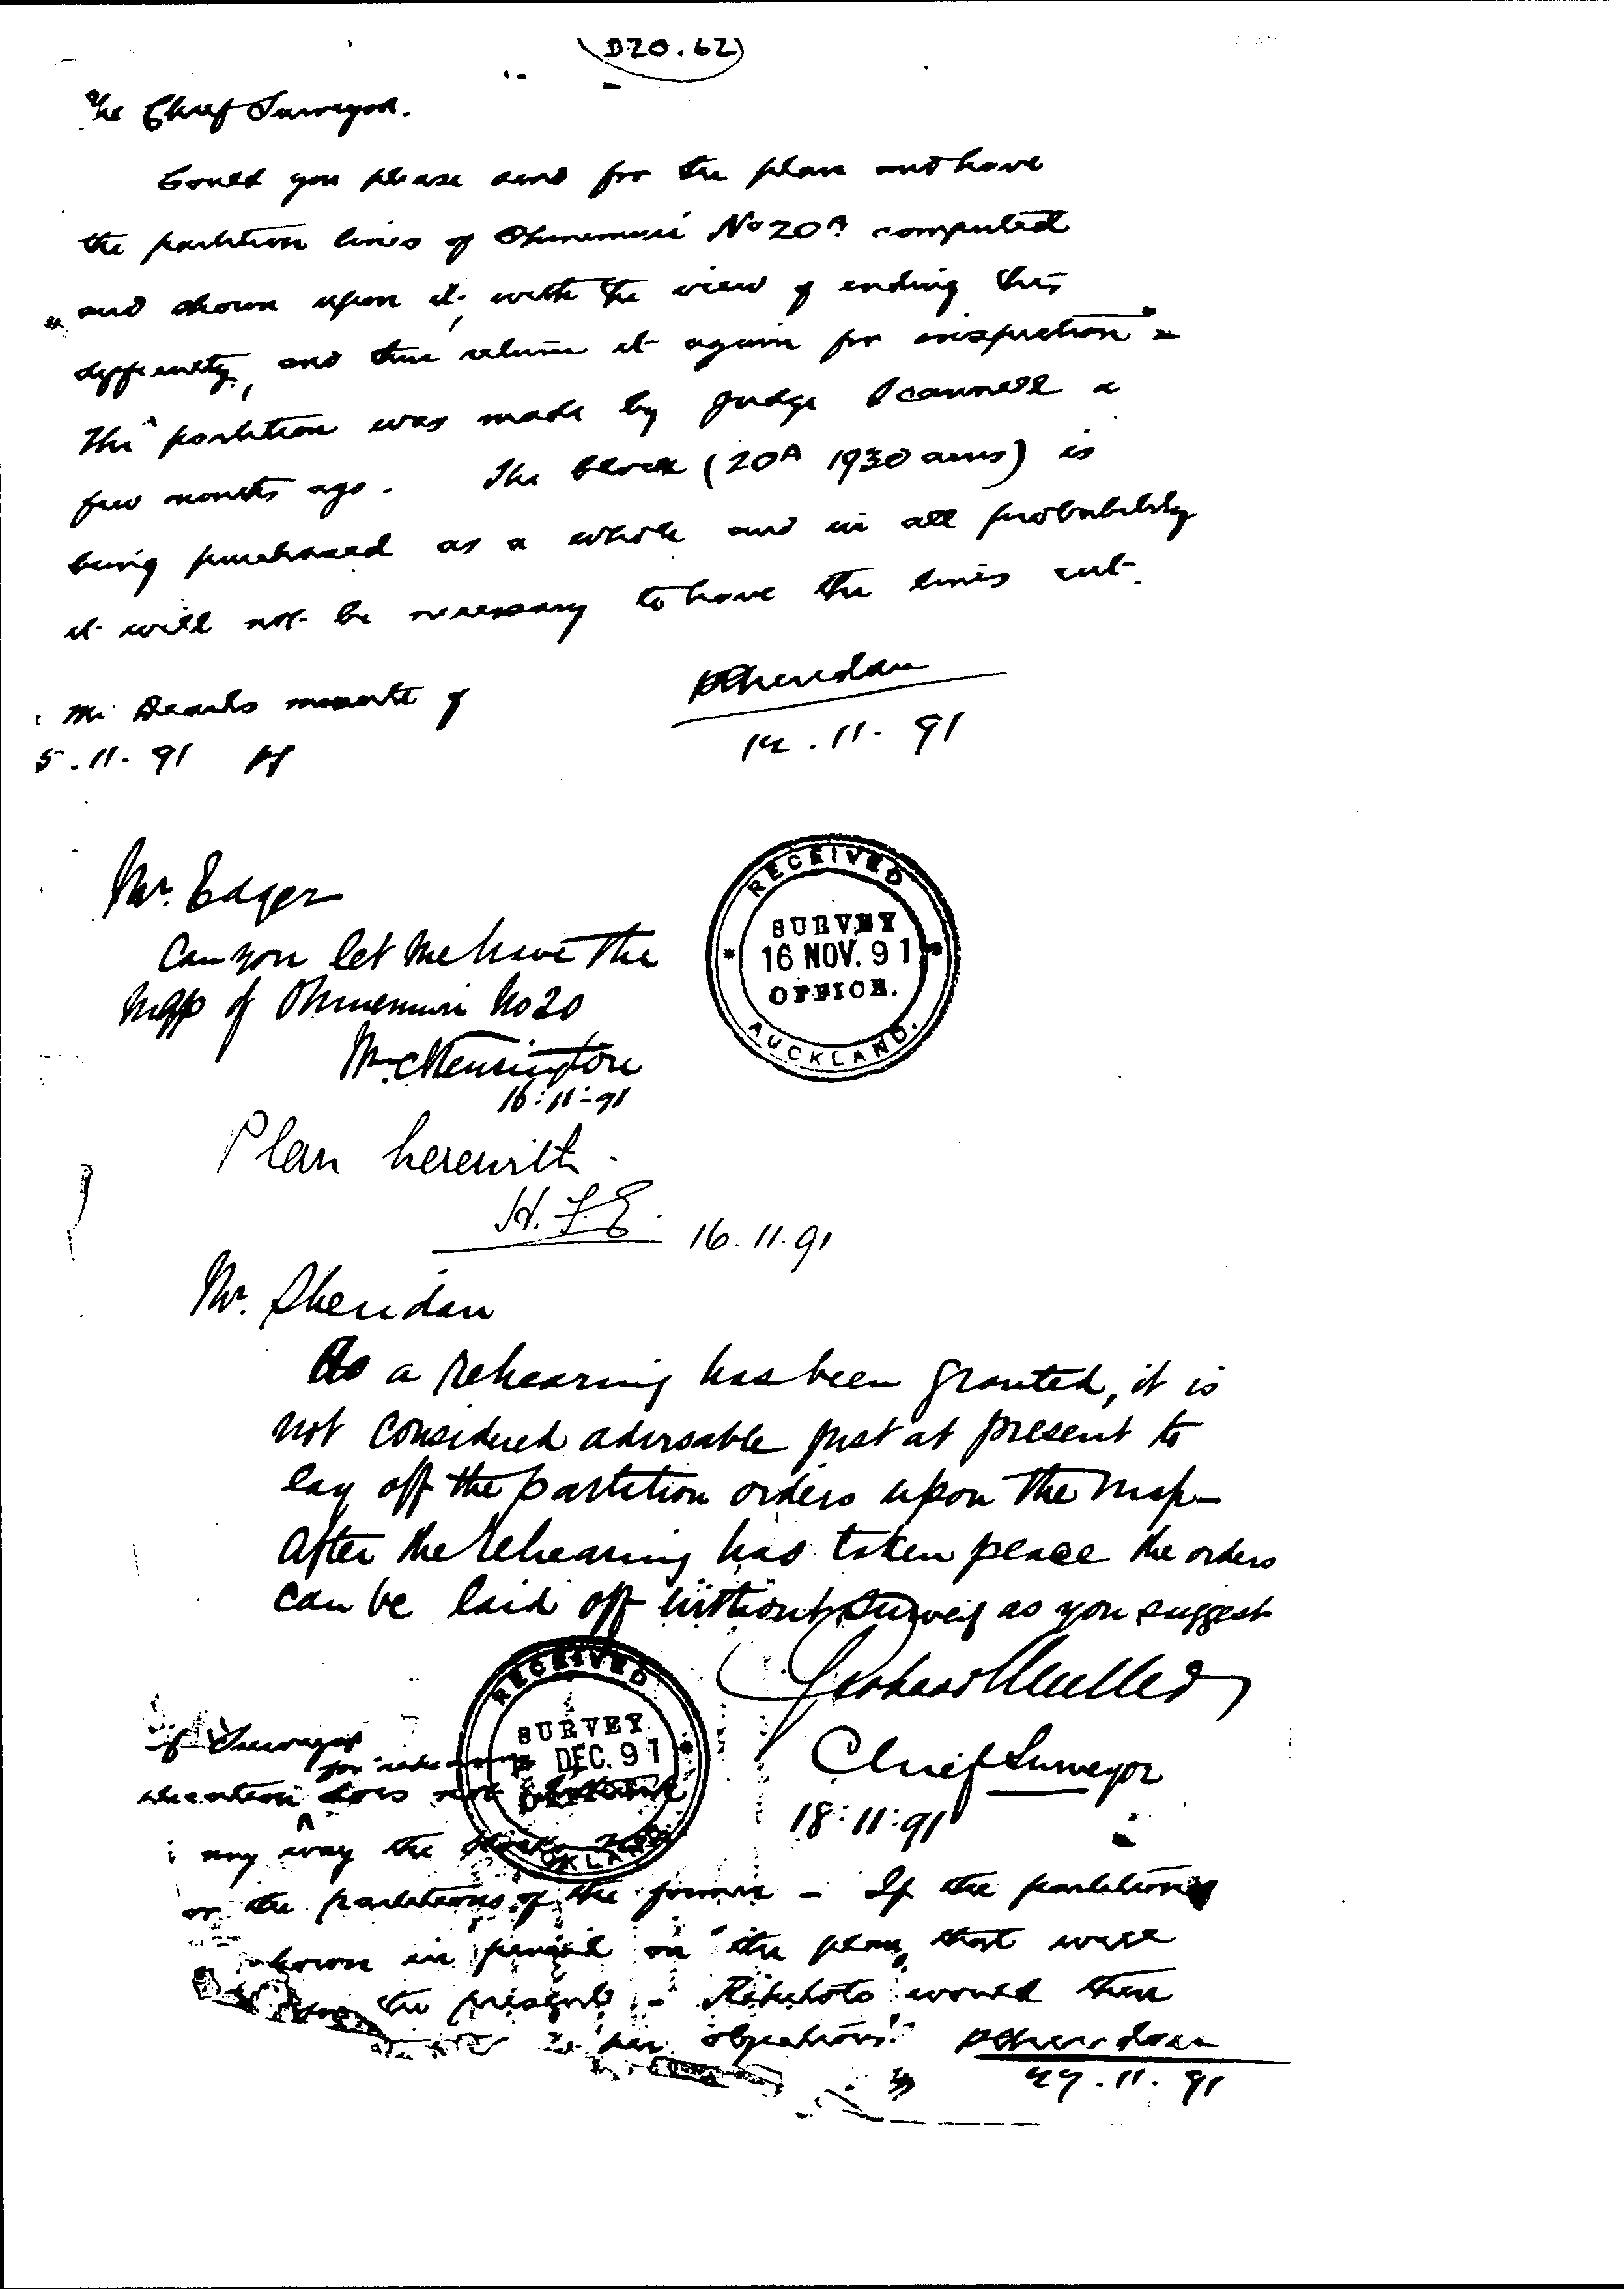 D20.62
The Chief Surveyor.
Could you please send for the plan and have
the partition lines of Ohinemuri No 20A computed
and shown upon it, with the view of ending this
difficulty, and then return it again for inspection
The partition was made by Judge Scannell a
few months ago. The block (20A 1930 acres) is
being purchased as a whole and in all probability
it will not be necessary to have the lines cut.
PSheridan
14.11.91
Mr minute of
5.11.91 PS
Mr. Edger
Can you let me have the
map of Ohinemuri No 20
W.C.Kensington
16:11:91
RECEIVED
SURVEY
16 NOV. 91
OFFICE.
AUCKLAND.
Plan herewith.
H.F.E. 16.11.91
Mr. Sheridan
As a rehearing has been granted, it is
not considered advisable just at present to
lay off the partition orders upon the map–
After the rehearing has taken place the orders
can be laid off without survey as you suggest
Gerhard Mueller
Chief Surveyor
18:11:91
RECEIVED
SURVEY
DEC. 91
OFFICE
Surveyor
for rehearing
does not
any way the
or the partitions of the former – If the partitions
shown in pencil on the plan, that will
the present – would then
objections. PSheridan
27.11.91